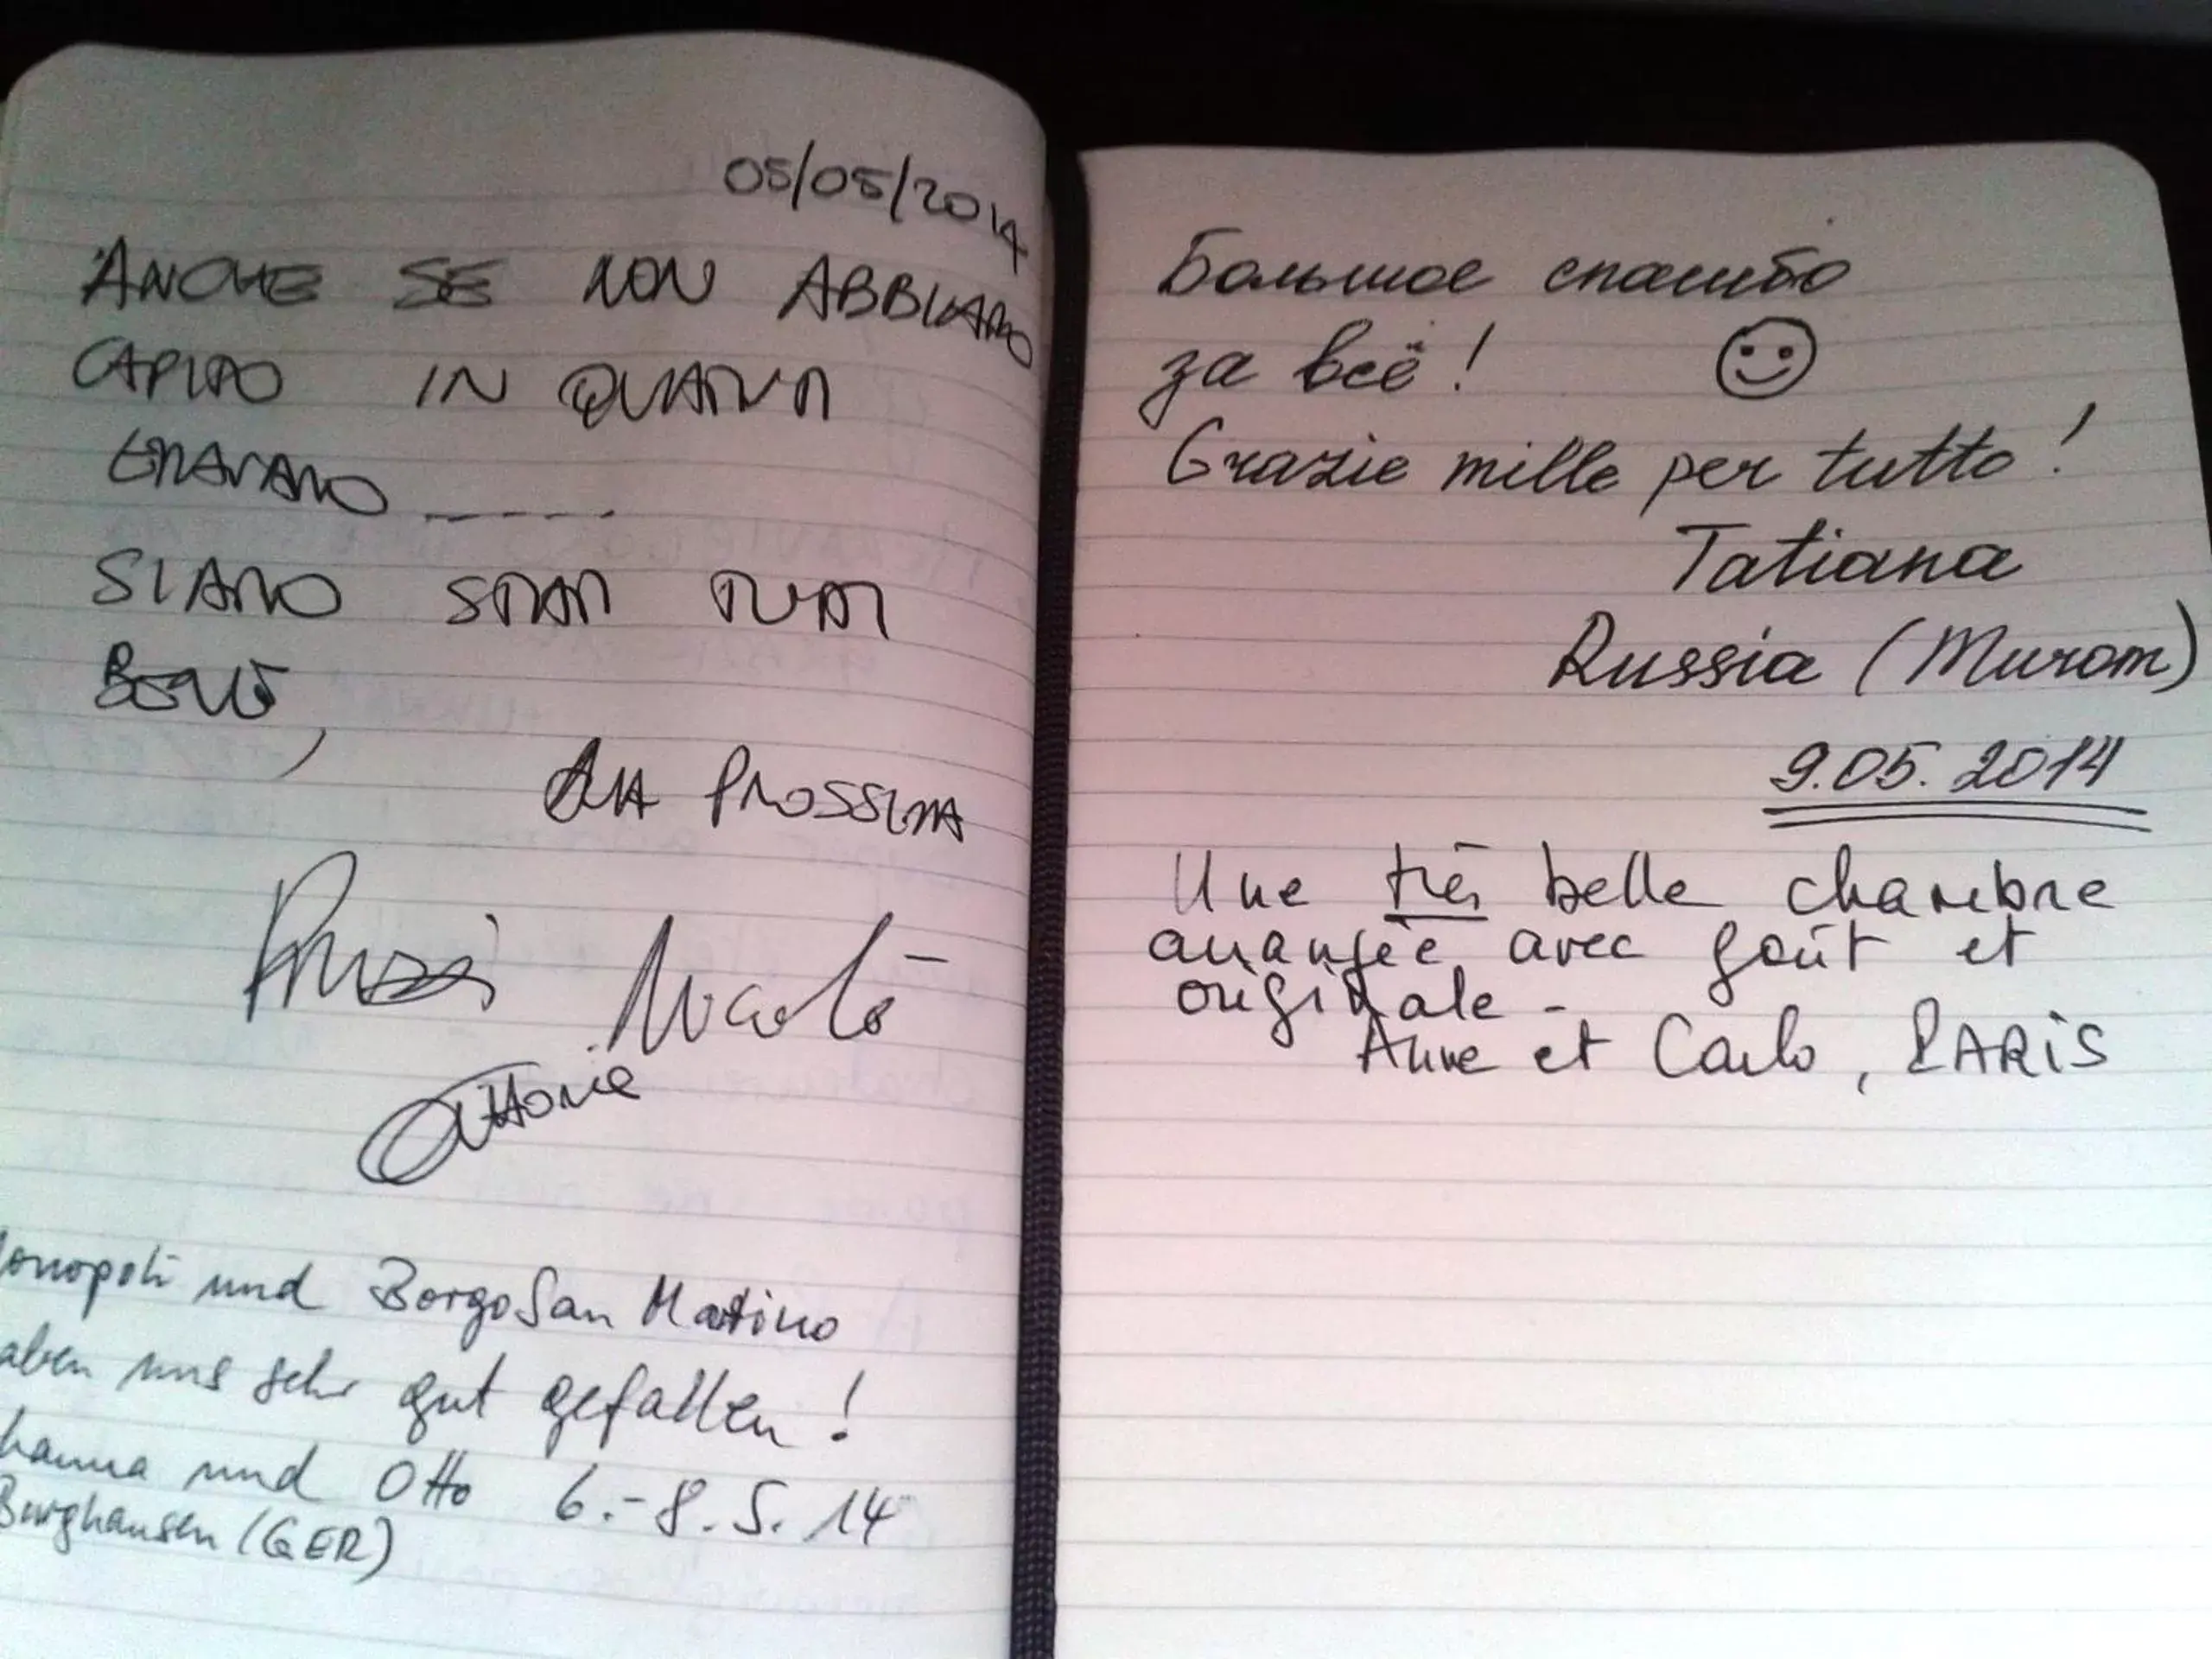 05/05/2014
ANCHE SE NON ABBIAMO
CAPITO IN QUANTI
ERAVAMO -----
SIAMO STATI TUTTI
BENE,
ALLA PROSSIMA
Nicolò
Monopoli und Borgo San Martino
haben uns sehr gut gefallen!
hanna und Otto 6.-8.5.14
Burghausen (GER)
Большое спасибо
за всё!
Grazie mille per tutto!
Tatiana
Russia (Murom)
9.05.2014
Une très belle chambre
arrangée avec goût et
originale -
Anne et Carlo, PARIS